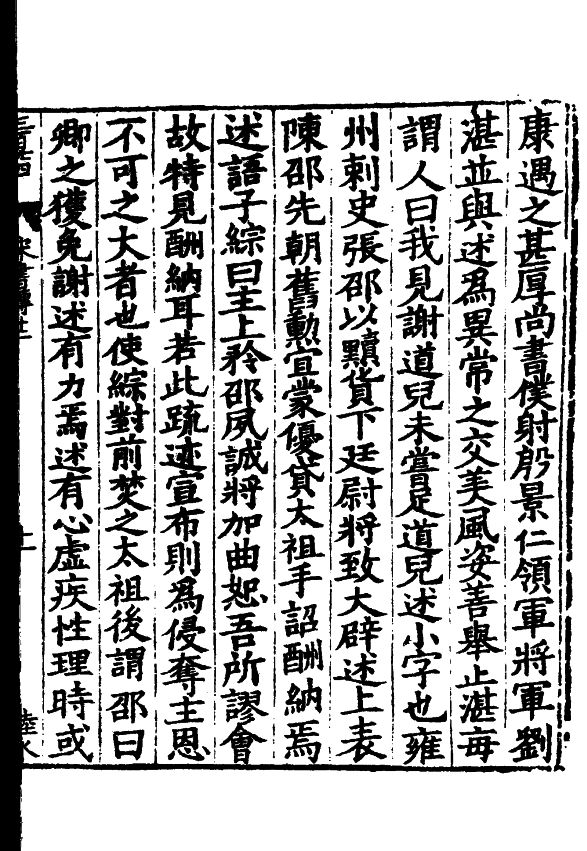 康遇之甚厚尚書僕射殷景仁領軍將軍劉
湛並與述爲異常之交美風姿善舉止湛每
謂人曰我見謝道兒未嘗足道兒述小字也雍
州刺史張邵以黷貨下廷尉將致大辟述上表
陳邵先朝舊勳宜蒙優貸太祖手詔酬納焉
述語子綜曰主上矜邵夙誠將加曲恕吾所謬會
故特見酬納耳若此疏迹宣布則爲侵奪主恩
不可之大者也使綜對前焚之太祖後謂邵曰
卿之獲免謝述有力焉述有心虛疾性理時或